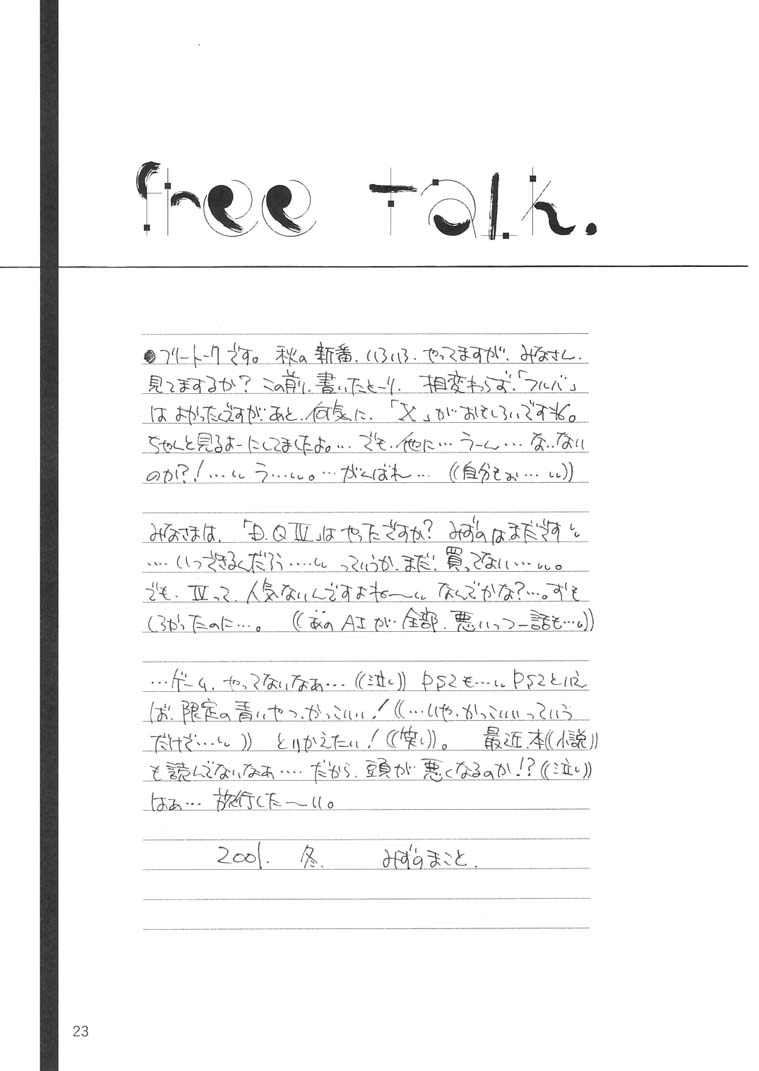 free Talk.
●フリートークです。秋の新番、いろいろ、やってますが、みなさん、
見てまするか?この前、書いたとーり、相変わらず、「フルバ」
はよかったんですが、あと、何気に、「X」がおもしろいですね。
ちゃんと見るよーにしてましたよ。…でも、他に…うーん…な、ない
のか?!…いう…い。…がんばれ…((自分もぉ…い))
みなさまは、「D.Q Ⅳ」はやったですか?みずのはまだですい
…いつできるんだろう…いっていうか、まだ、買ってない…い。
でも、Ⅳって、人気ないんですよねーいなんでかな?…。おも
しろかったのに…。((あのAIが、全部、悪いっつー話も…い))
…ゲーム、やってないなぁ…((泣い))PS2も…いPS2といえ
ば、限定の青いやつ、かっこいい!((…いや、かっこいいっていう
だけど…い))とりかえたい!((笑い))。最近、本((小説))
も読んでないなぁ…だから、頭が悪くなるのか!?((泣い))
はぁ…旅行した〜い。
2001. 冬. みずのまこと.
23